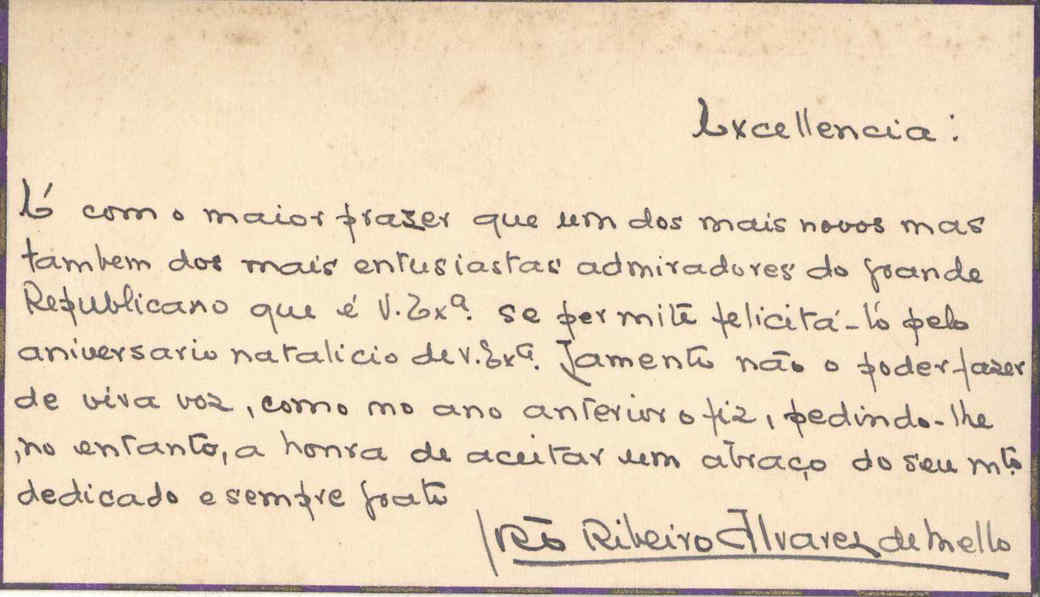 Excellencia:
É com o maior prazer que um dos mais novos mas
tambem dos mais entusiastas admiradores do grande
Republicano que é V. Exª. se permite felicitá-lo pelo
aniversario natalicio de V. Exª. Lamento não o poder fazer
de viva voz, como no ano anterior o fiz, pedindo-lhe
,no entanto, a honra de aceitar um abraço do seu mtº
dedicado e sempre grato
Ribeiro Alvarez de Mello